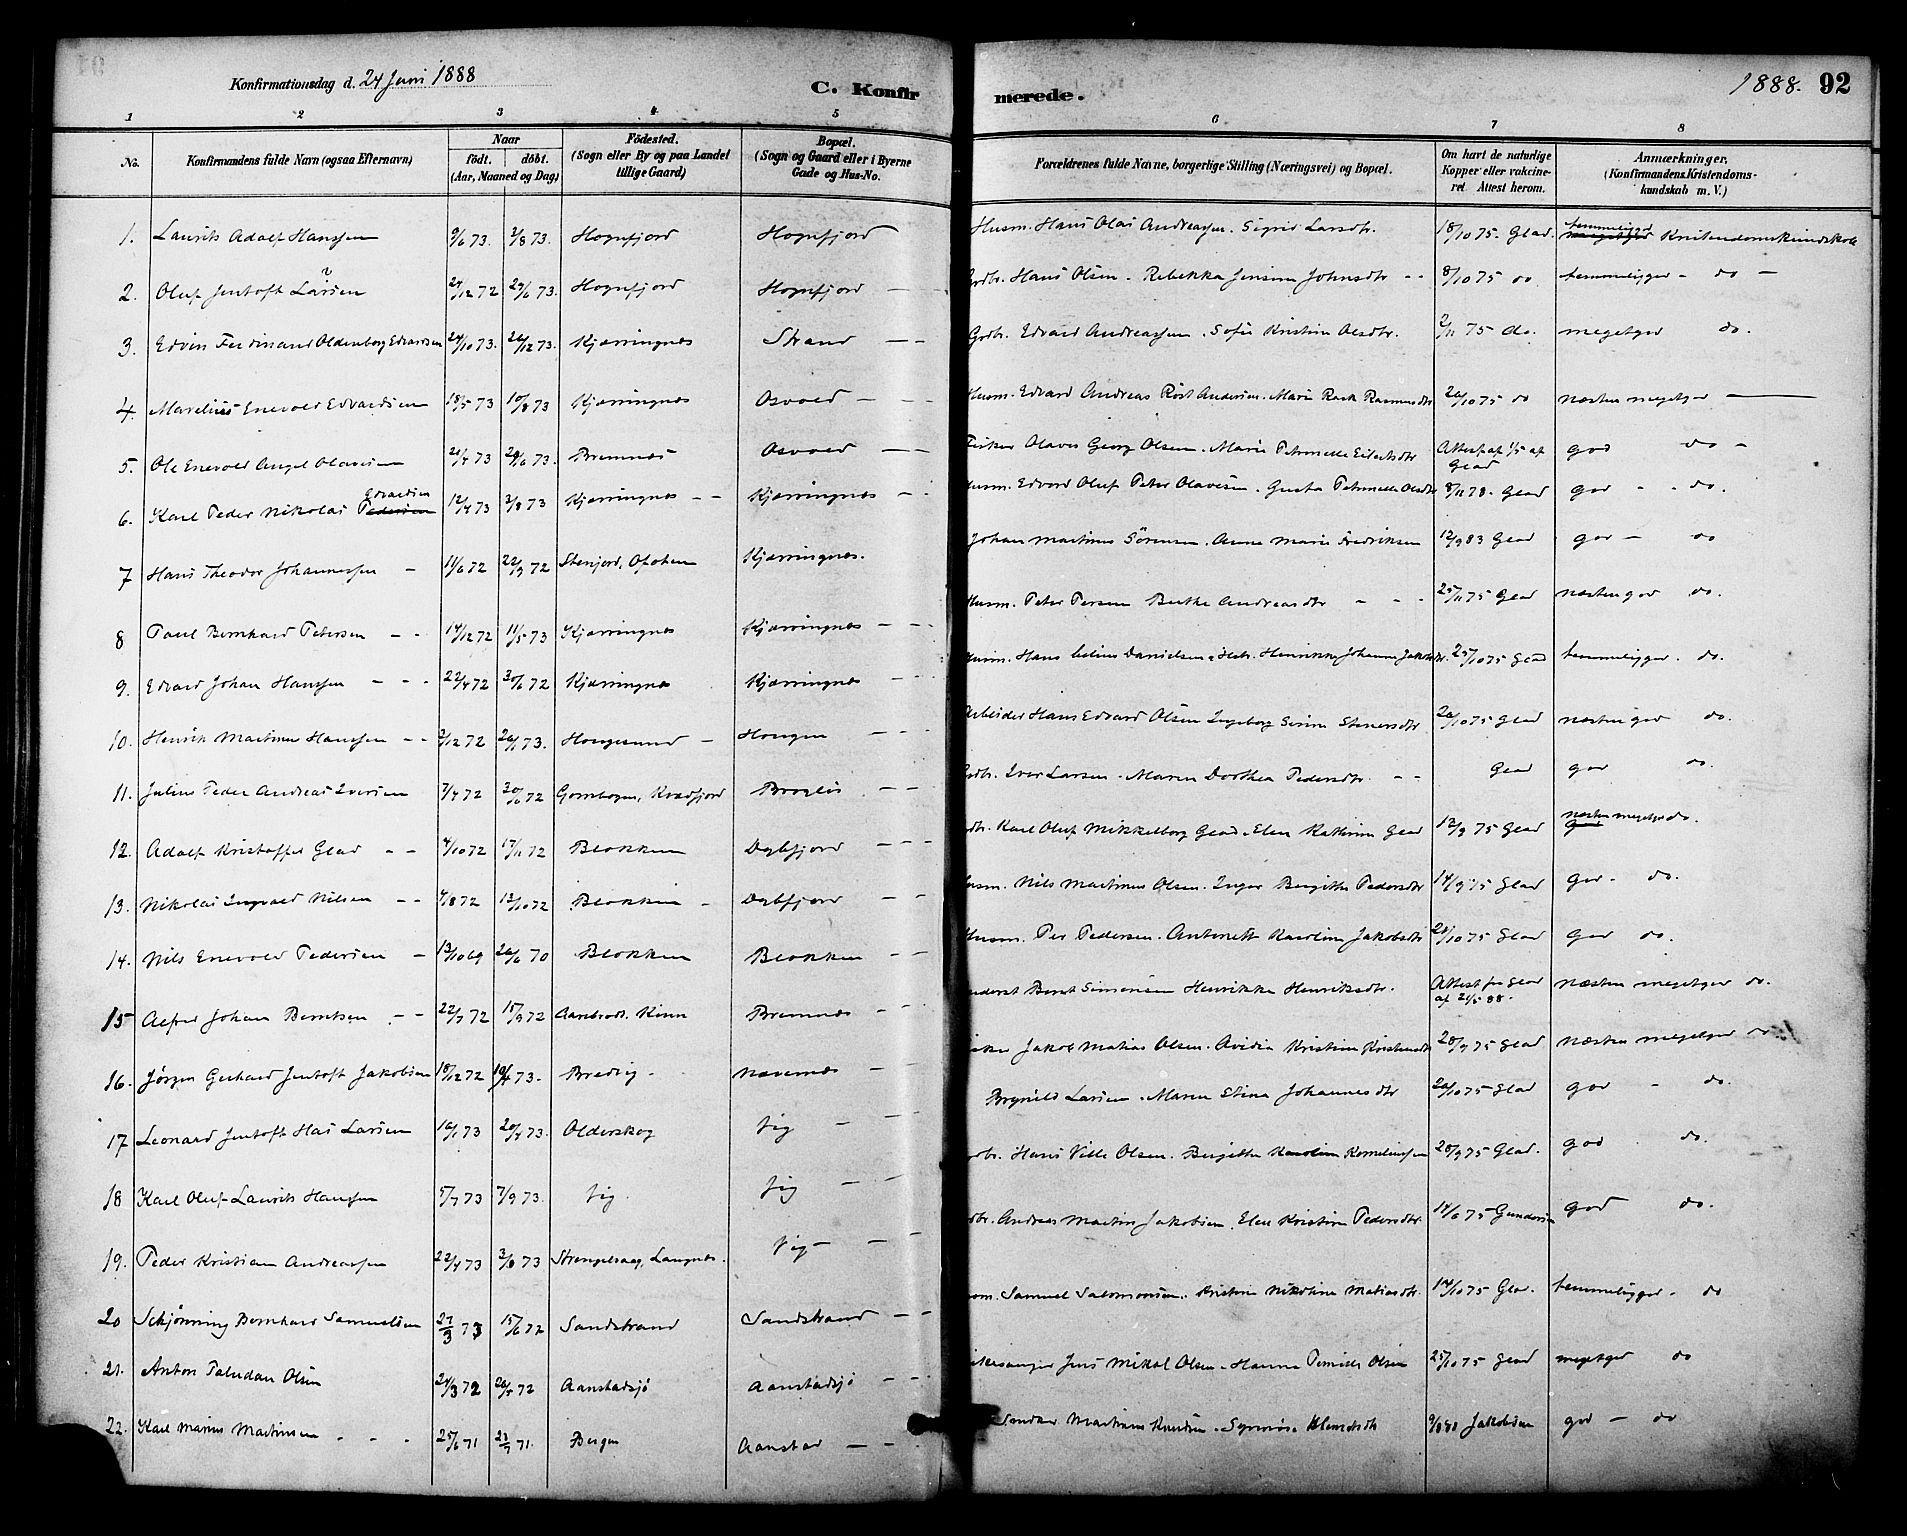 Konfirmationsdag d. 24 Juni 1888
C. Konfirmerede.
1888. 92
1 2 3 4 5 6 7 8
No.
Konfirmandens fulde Navn (ogsaa Efternavn)
Naar
födt. döbt.
(Aar, Maaned og Dag)
Födested.
(Sogn eller By og paa Landet
tillige Gaard)
Bopæl.
(Sogn og Gaard eller i Byerne
Gade og Hus-No.
Forældrenes fulde Navne, borgerlige Stilling (Næringsvei) og Bopæl.
Om havt de naturlige
Kopper eller vakcine-
ret. Attest herom.
Anmærkninger,
(Konfirmandens Kristendoms-
kundskab m. V.)
1. Laurits Adolf Hanssen 9/6 73. 3/8 73. Hognfjord Hognfjord Husm. Hans Olai Andreassen. Sigrid Larsdtr. 18/10 75. Glad. temmeliggod Kristendomskundskab
2. Oluf Jentoft Larsen 24/12 72 29/6 73. Hognfjord Hognfjord — Grdbr. Hans Olsen. Rebekka Jensine Johnsdtr - - 8/10 75 do temmeliggod - do -
3. Edvin Ferdinand Oldenborg Edvardsen 24/10 73. 26/12 73. Kjærringnes Strand — Grdbr. Edvard Andreassen. Sofie Kristine Olsdtr. 2/11 75 do. megetgod do.
4. Marelius Enevold Edvardsen 18/5 73 10/8 73 Kjærringnes Osvold — Husm. Edvard Andreas Röst Andersen. Marie Rask Rasmusdtr 20/10 75 do næsten megetgod —
5. Ole Enevold Angel Olavesen 21/4 73 29/6 73. Bremnes Osvold — Fisker Olaves Georg Olsen. Marie Petrnelle Eilertsdtr Attest af 1/5 af Glad god do -
6. Karl Peder Nikolai Edvardsen 12/4 73 3/8 73 Kjærringnes - - Kjærringnes - - Husm. Edvard Oluf Peter Olavesen. Gusta Petrnelle Olsdtr 8/11 78. Glad god - - do.
7 Hans Theodor Johannessen - 11/6 72 22/9 72 Stenjord, Ofoten Kjærringnes. Johan Martinus Sörensen. Anne Marie Fredriksen 12/9 83 Glad god - do
8 Paul Bernhard Petersen - - 14/12 72 11/5 73 Kjærringnes Kjærringnes - - - Husm. Peter Persen Berthe Andreasdtr - - - 25/11 75 Glad næsten god do.
9. Edvard Johan Hanssen - - - 22/4 72 30/6 72 Kjærringnes Kjærringnes - - - Husm. Hans Danielsen Henrikke Johanna Jakobsdtr. 25/10 75 Glad temmeliggod. do.
10. Henrik Martinus Hanssen - - 2/12 72 26/1 73. Hougesund - Hougen - - - Arbeider Hans Edvard Olsen Ingeborg Serine Stenersdtr 20/10 75 Glad næstengod do.
11. Julius Peder Andreas Iversen 7/4 72 30/6 72 , Kvædfjord - - Grdbr. Iver Larsen. Maren Dorthea Pedersdtr. - - Glad god do.
12. Adolf Kristoffer Glad - - 4/10 72 17/11 72 Blokken Dybfjord - - - Karl Oluf Mikkelborg Glad. Elen Kathrine Glad 12/9 75 Glad næsten megetgod do.
13. Nikolai Ingvald Nilsen - - 4/8 72 13/10 72 Blokken - Dybfjord - - Husm. Nils Martinus Olsen. Inger Birgitte Pedersdtr 14/9 75 Glad god. do.
14. Nils Enevold Pedersen - 13/10 69 26/6 70 Blokken Blokken - - Husm. Per Pedersen. Antonette Karoline Jakobsdtr 21/10 75 Glad god do.
15 Alfred Johan Berntsen - - 22/7 72 15/9 72 Kinn Bremnes - - Bernt Simonsen Henrikke Henriksdtr. Attest fra Glad af 21/5 88. næsten megetgod do.
16. Jörgen Gerhard Jentoft Jakobsen 18/12 72 19/4 73. Bredvig - Nævernes - - Jakob Matias Olsen. Avidia Kristine Kristensdtr 28/9 75 Glad næsten megetgod do
17 Leonard Jentoft Has Larsen 10/1 73 20/4 73. Olderskog Sig - Brynild Larsen. Maren Stina Johannesdtr 20/10 75 Glad god - do.
18 Karl Oluf Laurits Hanssen 5/7 73 7/9 73. Sig Sig - - Hans Ville Olsen. Birgitte Karoline Korneliussen 28/9 75 Glad. god do.
19. Peder Kristian Andreassen 22/4 73 3/8 73 Strengelvaag, Langnes. Sig - - - Andreas Martin Jakobsen. Elen Kristine Pedersdtr. 14/6 75 Gundersen god do.
20 Schjönning Bernhard Samuelsen 27/3 73 15/6 72 Sandstrand Sandstrand - - Samuel Salomonsen. Kristine Nikoline Matiasdtr. 14/10 75 Glad. temmeliggod. do
21. Anton Paludan Olsen 24/3 72 20/5 72 Aanstadsjö Aanstadsjö - - Jens Mikal Olsen. Hanna Olsen 25/10 75 Glad megetgod do
22. Karl Marius Martinsen - - - 25/6 71 23/7 71. Bergen Aanstad - - Martinus Knudsen. 9/8 81 Jakobsen god - do